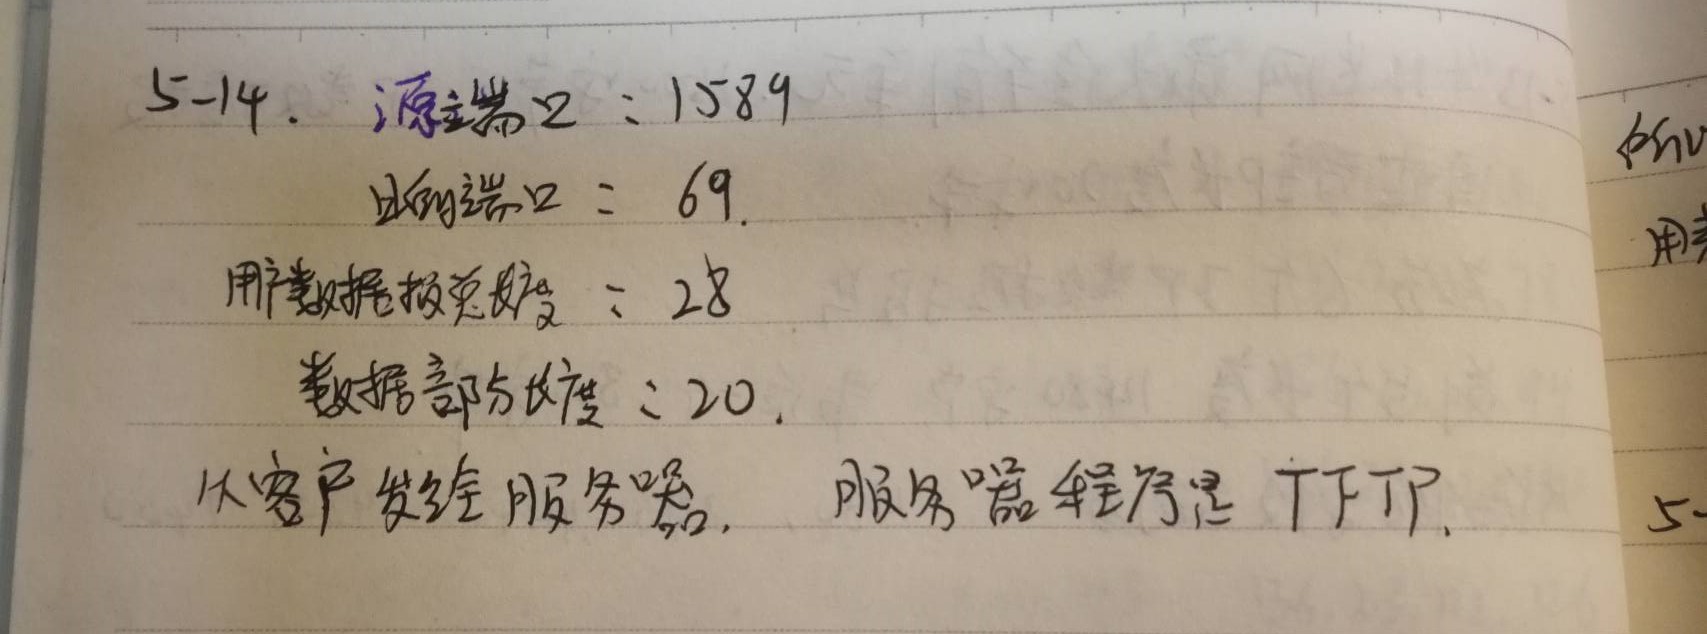 5-14. 源端口：1589
目的端口：69.
用户数据报总长度：28
数据部分长度：20.
从客户发给服务器. 服务器程序是 TFTP.
用
5-